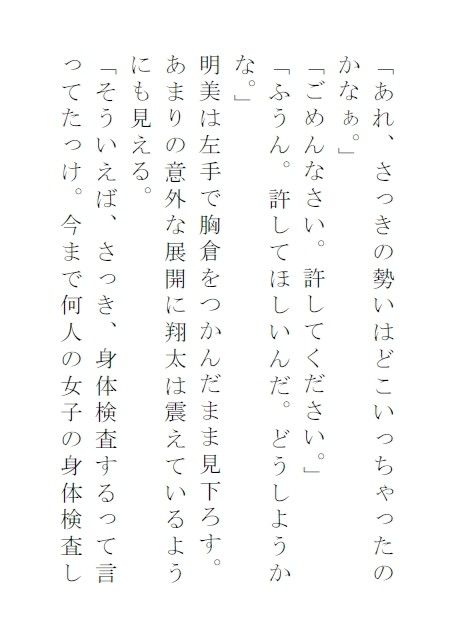 「あれ、さっきの勢いはどこいっちゃったの
かなぁ。」
「ごめんなさい。許してください。」
「ふうん。許してほしいんだ。どうしようか
な。」
明美は左手で胸倉をつかんだまま見下ろす。
あまりの意外な展開に翔太は震えているよう
にも見える。
「そういえば、さっき、身体検査するって言
ってたっけ。今まで何人の女子の身体検査し